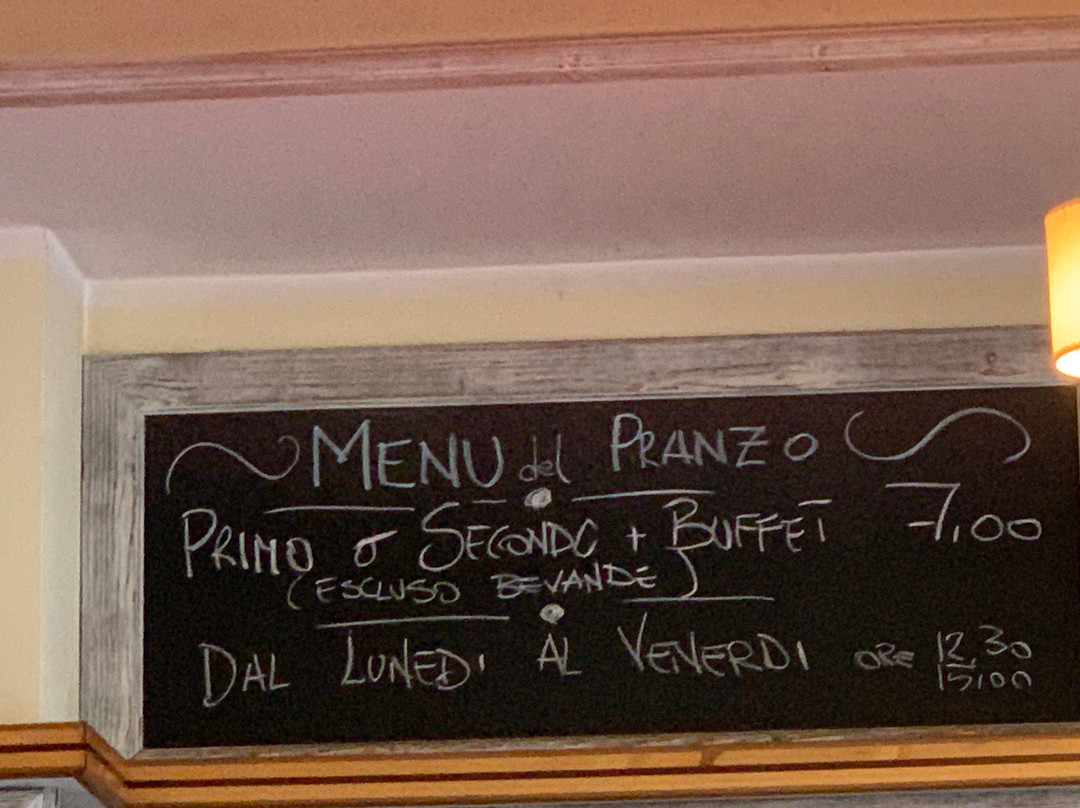 MENU del PRANZO
PRIMO o SECONDO + BUFFET 7,00
(ESCLUSO BEVANDE)
DAL LUNEDI AL VENERDI ORE 12,30
15,00